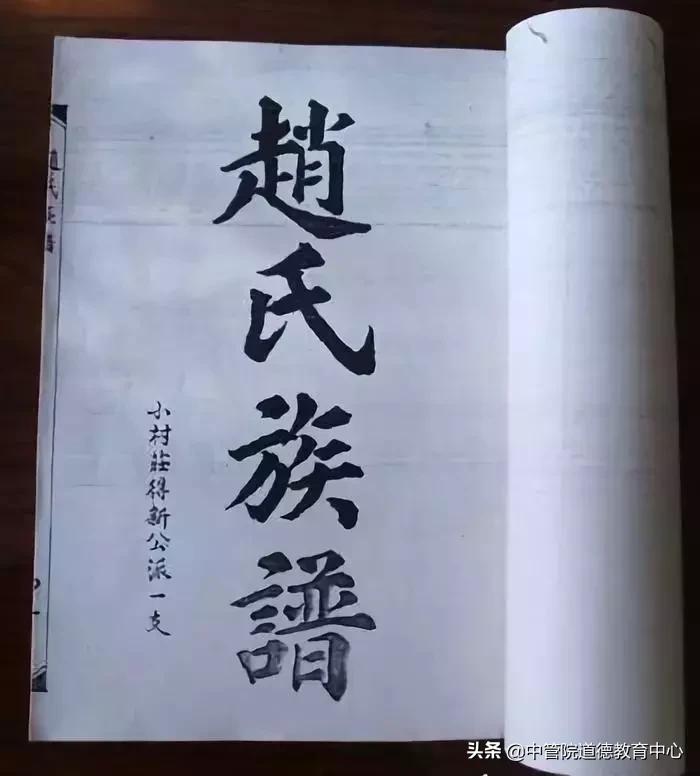 趙氏族譜
小村莊得新公派一支
趙氏族譜
头条 @中管院道德教育中心